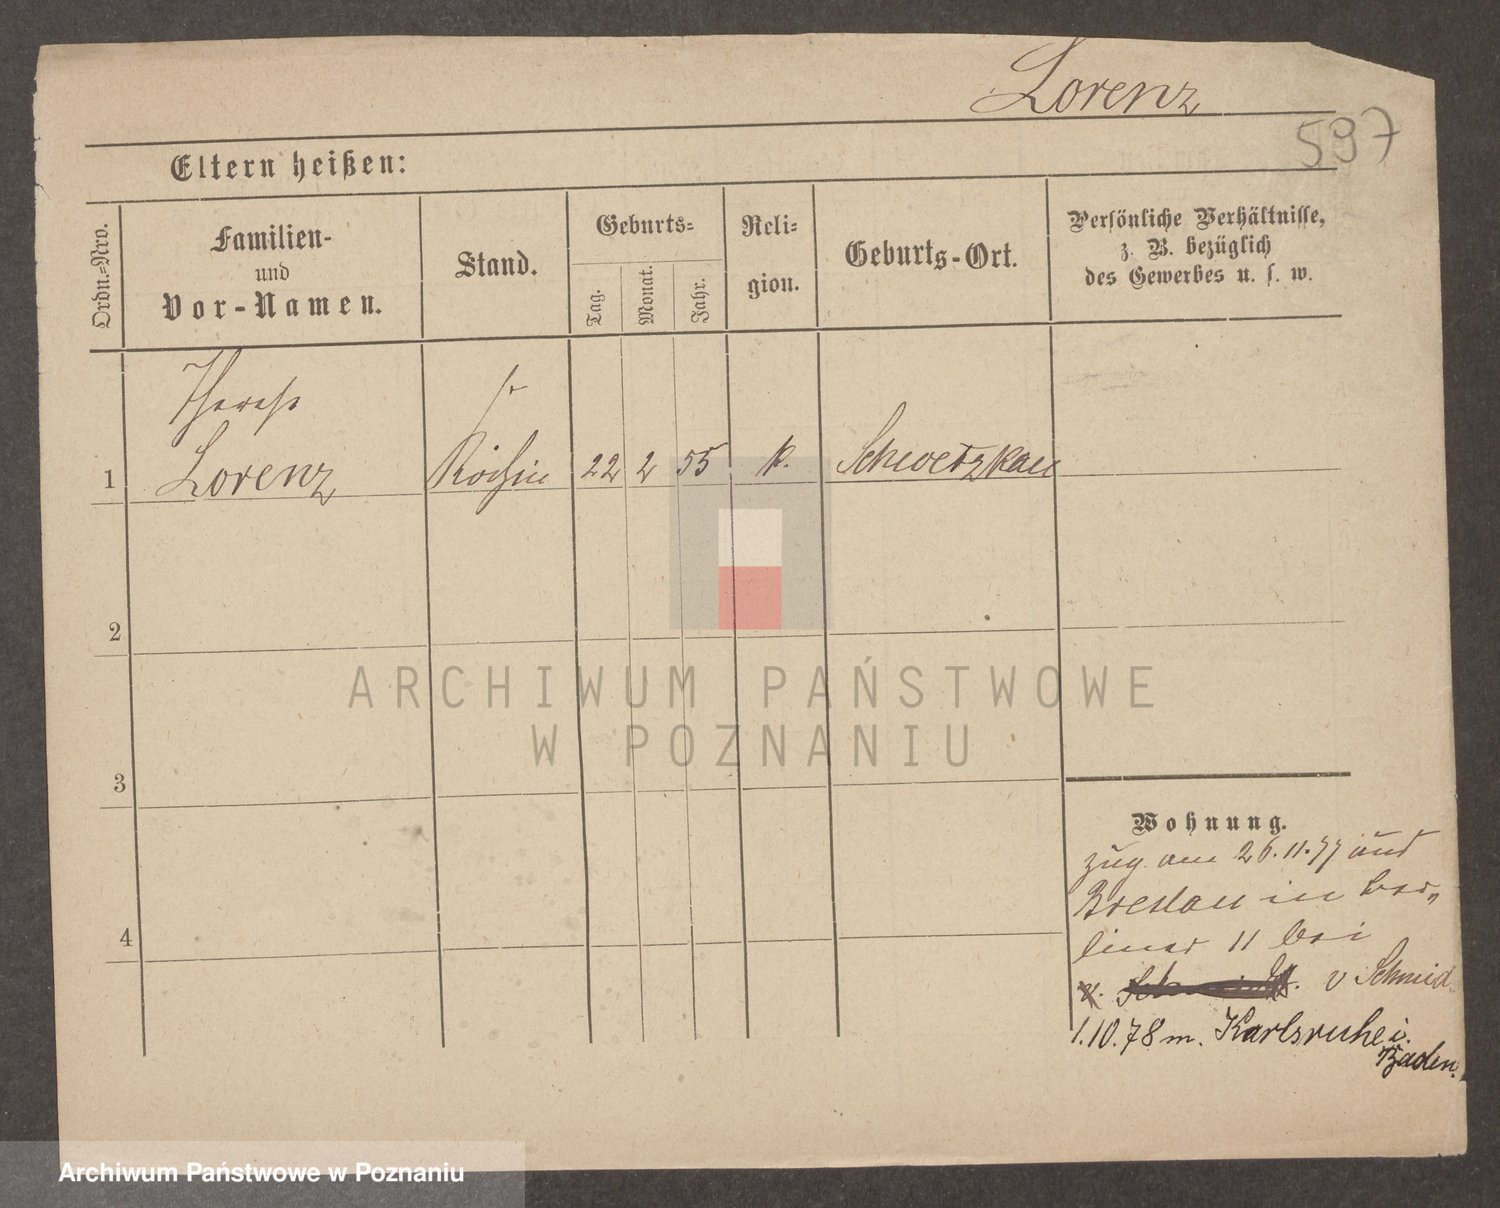 Lorenz
597
Eltern heißen:
Ordn.-Nro.
Familien-
und
Vor-Namen.
Stand.
Geburts-
Tag.
Monat.
Jahr.
Reli-
gion.
Geburts-Ort.
Persönliche Verhältnisse,
z. B. bezüglich
des Gewerbes u. s. w.
Therese
1 Lorenz Köchin 22 2 55 k. Schwetzkau
2
3
4
Wohnung.
zug. am 26.11.77 aus
Breslau in Ber„
liner 11 bei
v Schmid
1.10.78 m. Karlsruhe i.
Baden.
ARCHIWUM PAŃSTWOWE
W POZNANIU
Archiwum Państwowe w Poznaniu